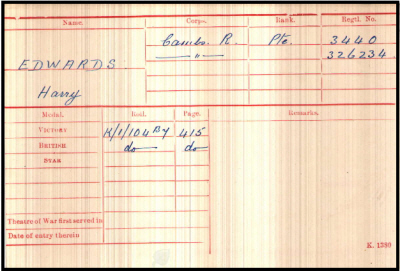 Name. Corps. Rank. Regtl. No.
Cambs. R. Pte. 3440
—"— 326234
EDWARDS
Harry
Medal. Roll. Page. Remarks.
VICTORY K/1/104 B7 415
BRITISH do do
STAR
Theatre of War first served in
Date of entry therein
K. 1380